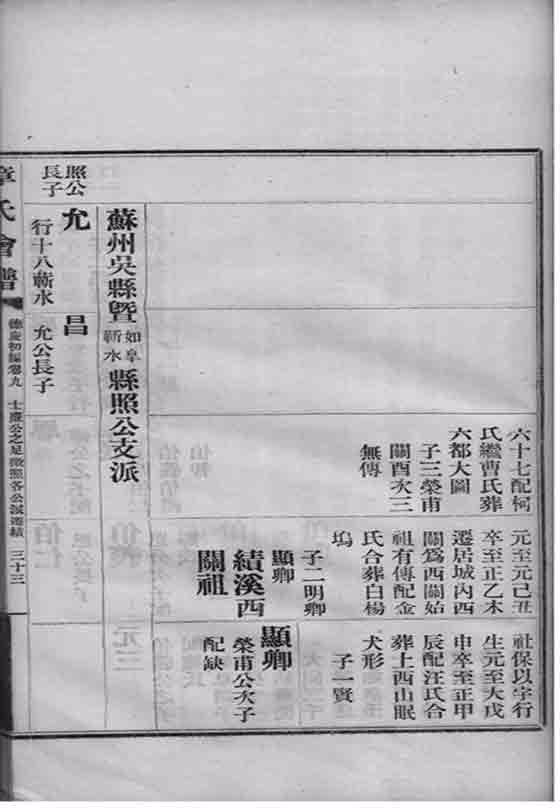 六十七配柯
氏繼曹氏葬
六都大圖
子三榮甫
關酉次三
無傳
元至元己丑
卒至正乙未
遷居城內西
關爲西關始
祖有傳配金
氏合葬白楊
塢
子二明卿
顯卿
績溪西
關祖
社保以字行
生元至大戊
申卒至正甲
辰配汪氏合
葬上西山眠
犬形
子一賢
顯卿
榮甫公次子
配缺
蘇州吳縣暨如皋蘄水縣照公支派
照公
長子
允
行十八蘄水
昌
允公長子
章氏會譜
德慶初編卷九
三十三